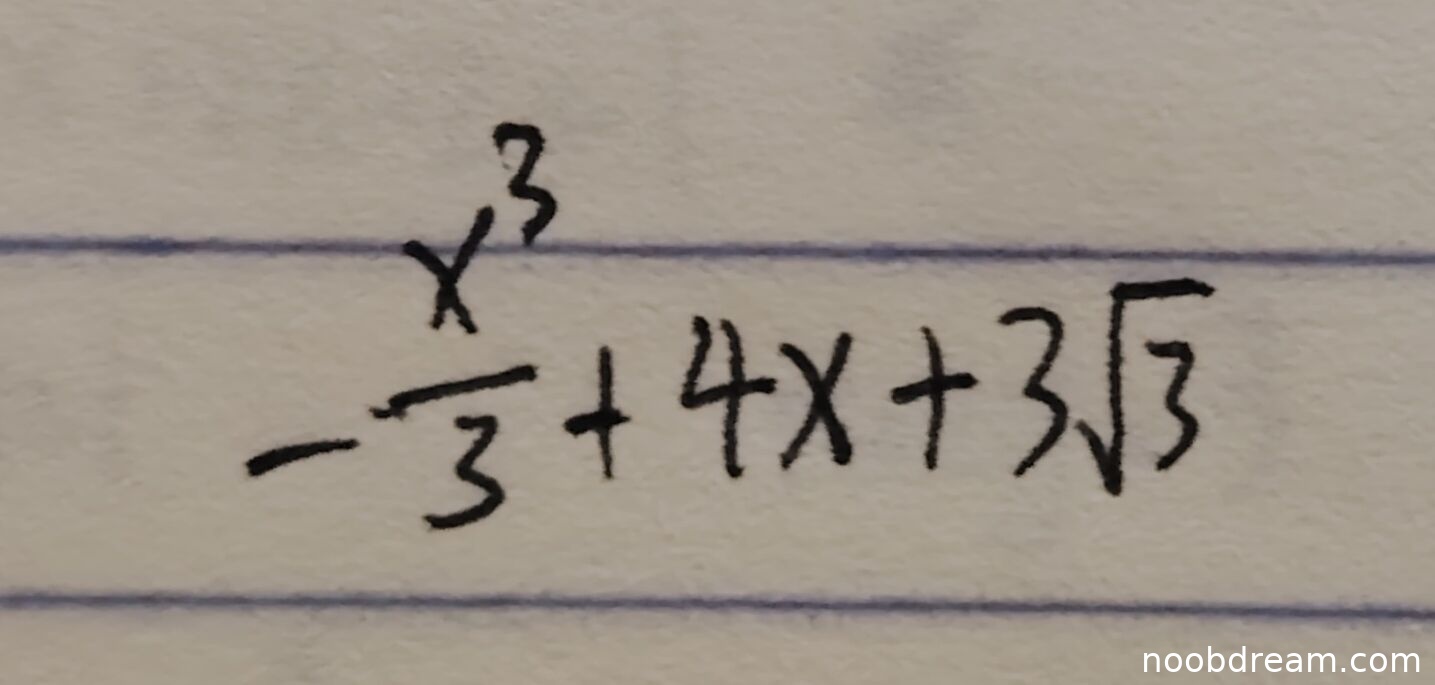 -x³/3 + 4x + 3√3
noobdream.com